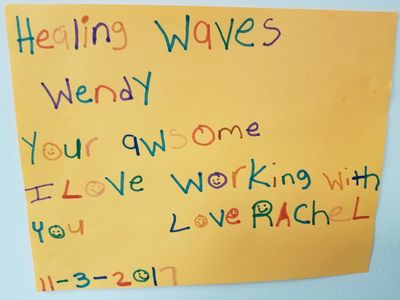 Healing Waves
Wendy
Your awsome
I Love working with
you Love RAcheL
11-3-2017